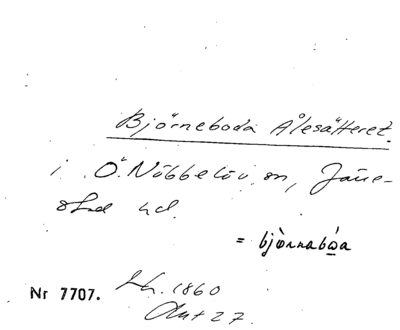 Björneboda Ålesätteret.
i Ö. Nöbbelöv sn, Järre-
stad hd.
= bjò̤rnabώ̲a
Nr 7707. 1860
27.